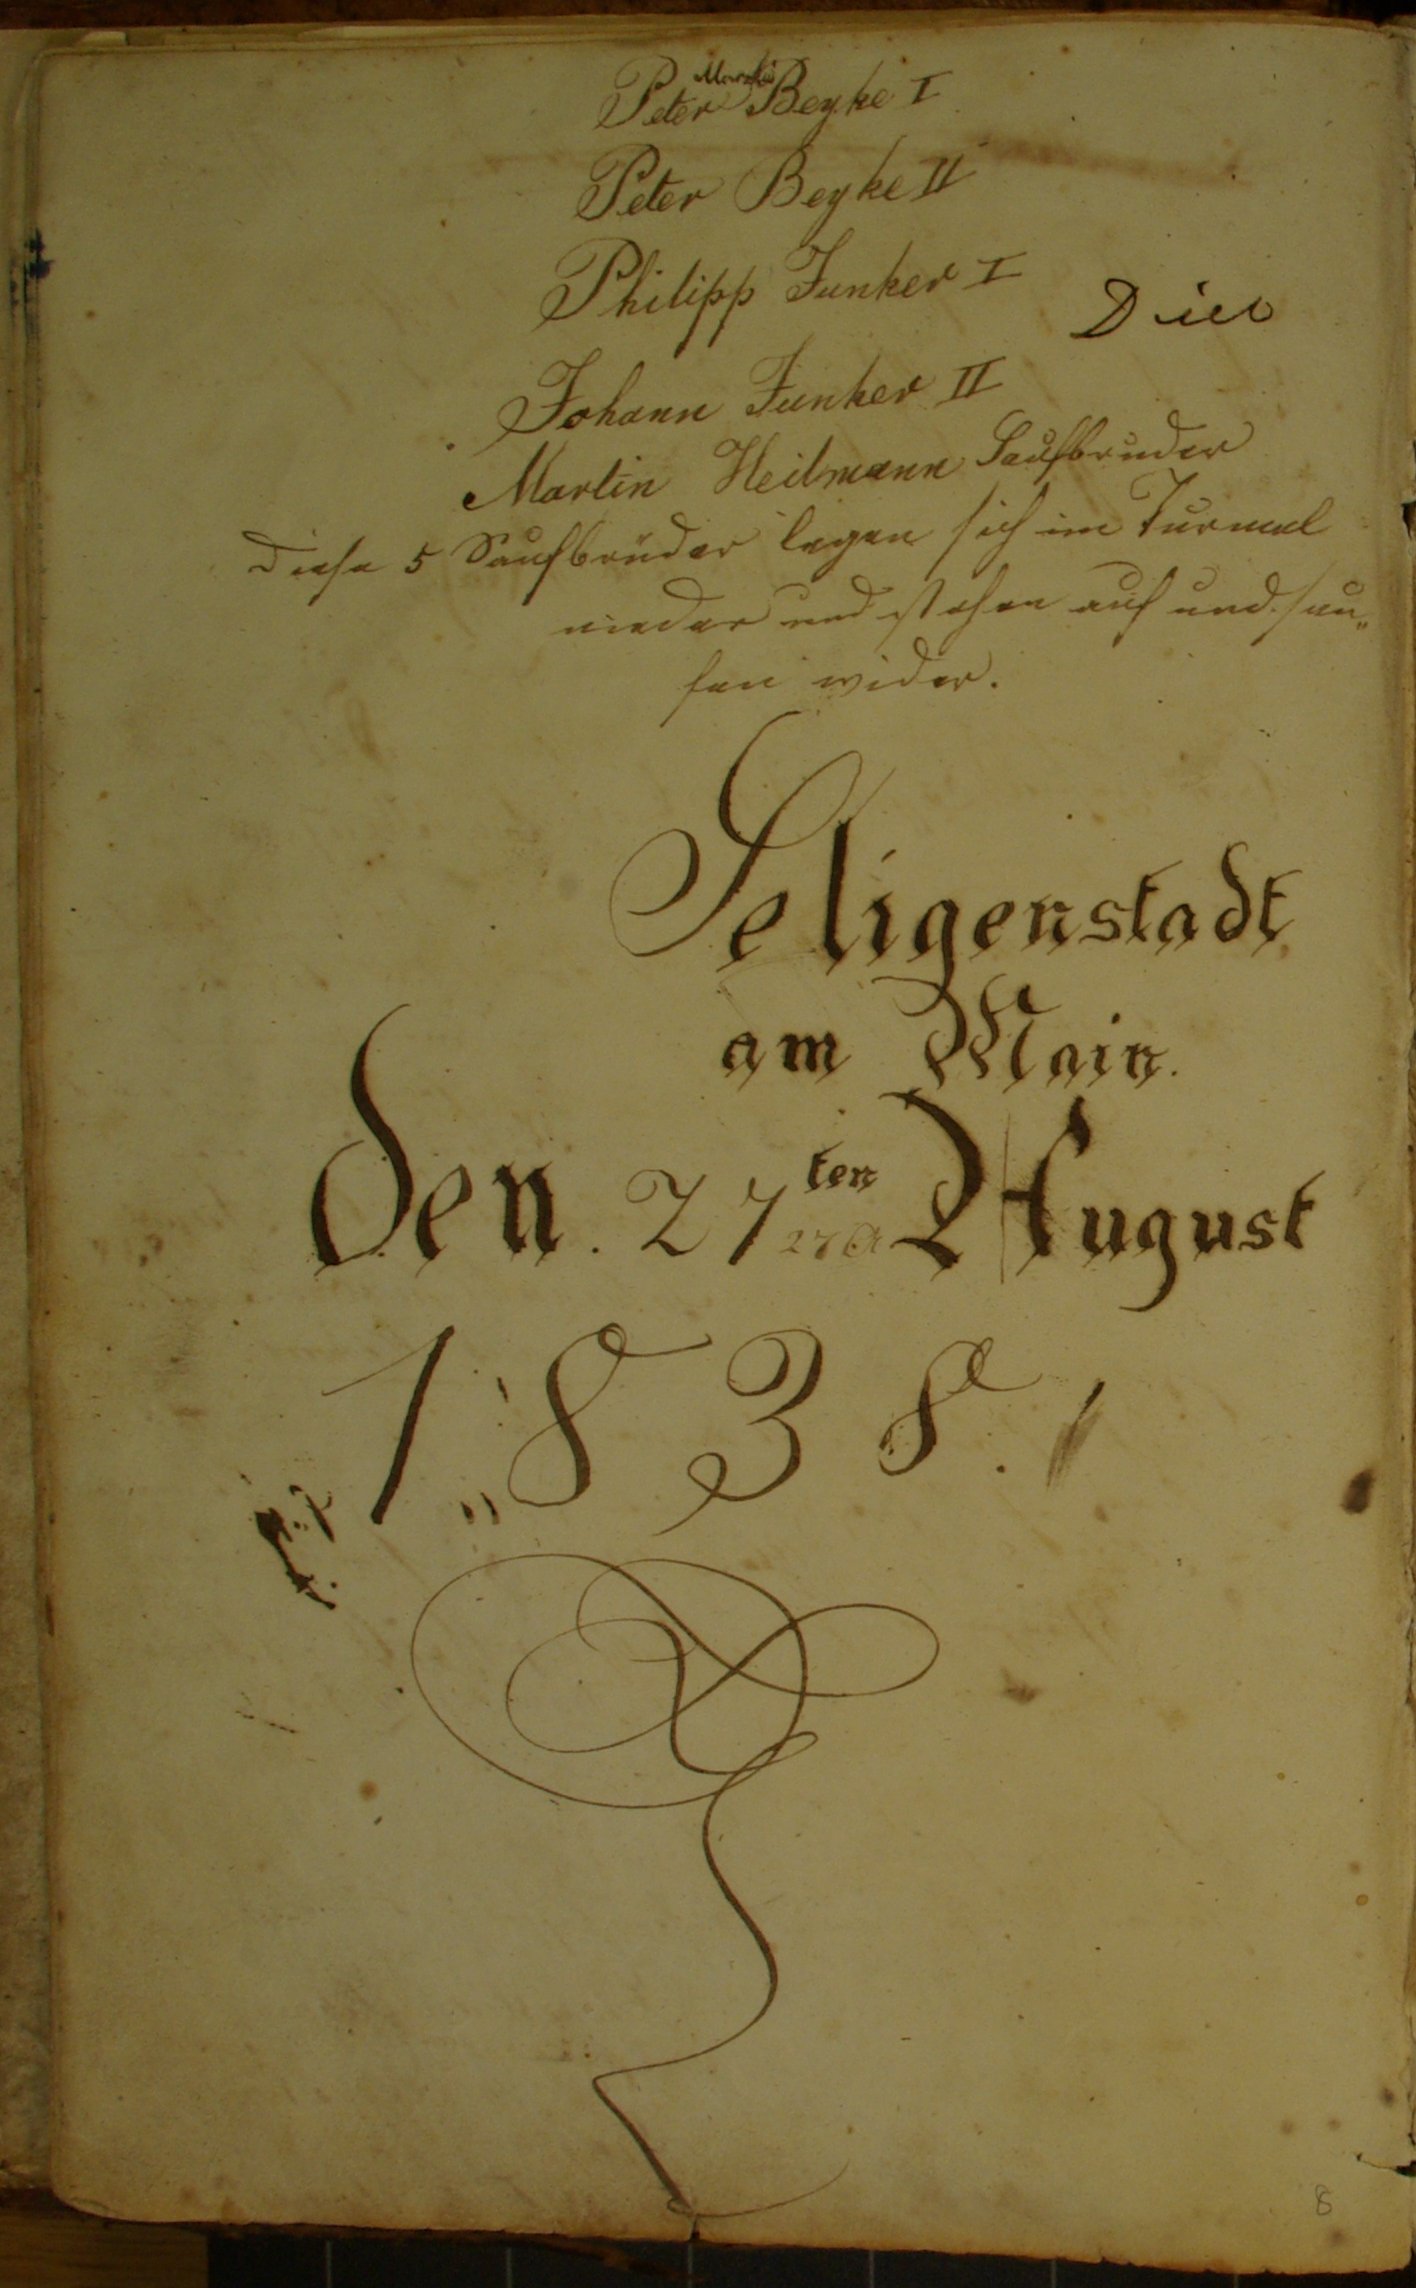 Peter Beyke I
Peter Beyke II
Philipp Junker I
Johann Junker II
Martin Heilmann Saufbruder
Diese 5 Saufbrüder legen sich im Turmel
nieder und stehen auf und sau„
fen wider.
Seligenstadt
am Main.
Den. 27ten August
1838.
8